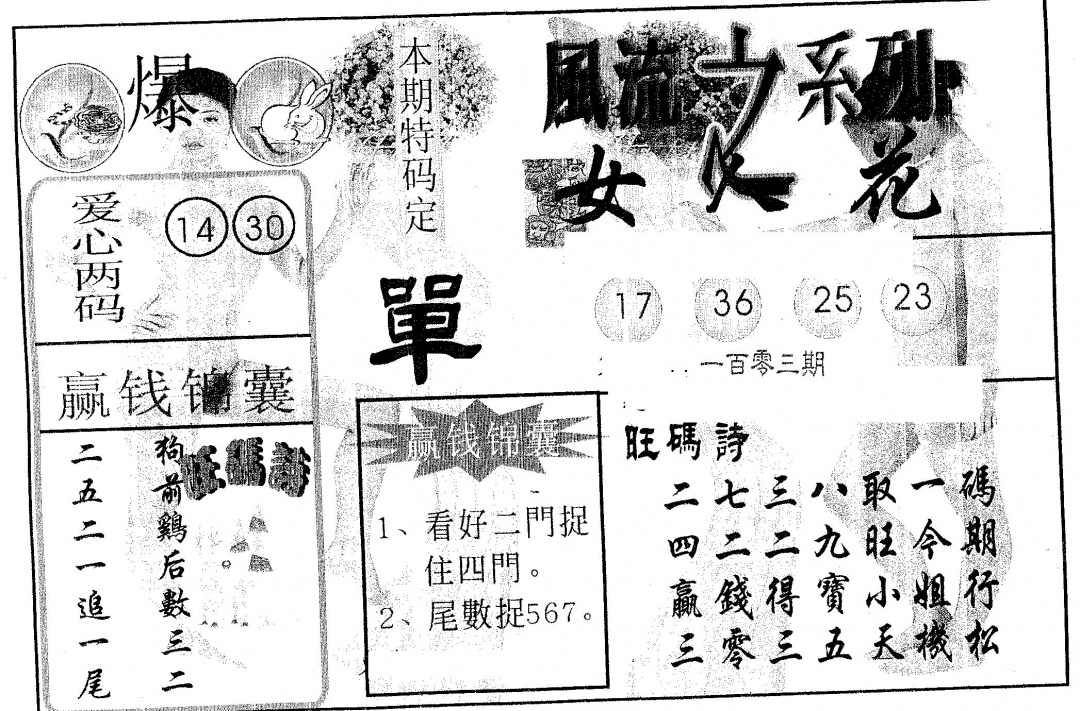 爆
爱心两码
14 30
赢钱锦囊
旺碼詩
狗前鷄后數三二
二五二一追一尾
本期特码定
單
赢钱锦囊
1、看好二門捉
住四門。
2、尾數捉567。
風流之系列
女人花
17 36 25 23
一百零三期
旺碼詩
二七三八取一碼
四二二九旺今期
贏錢得寶小姐行
三零三五天機松